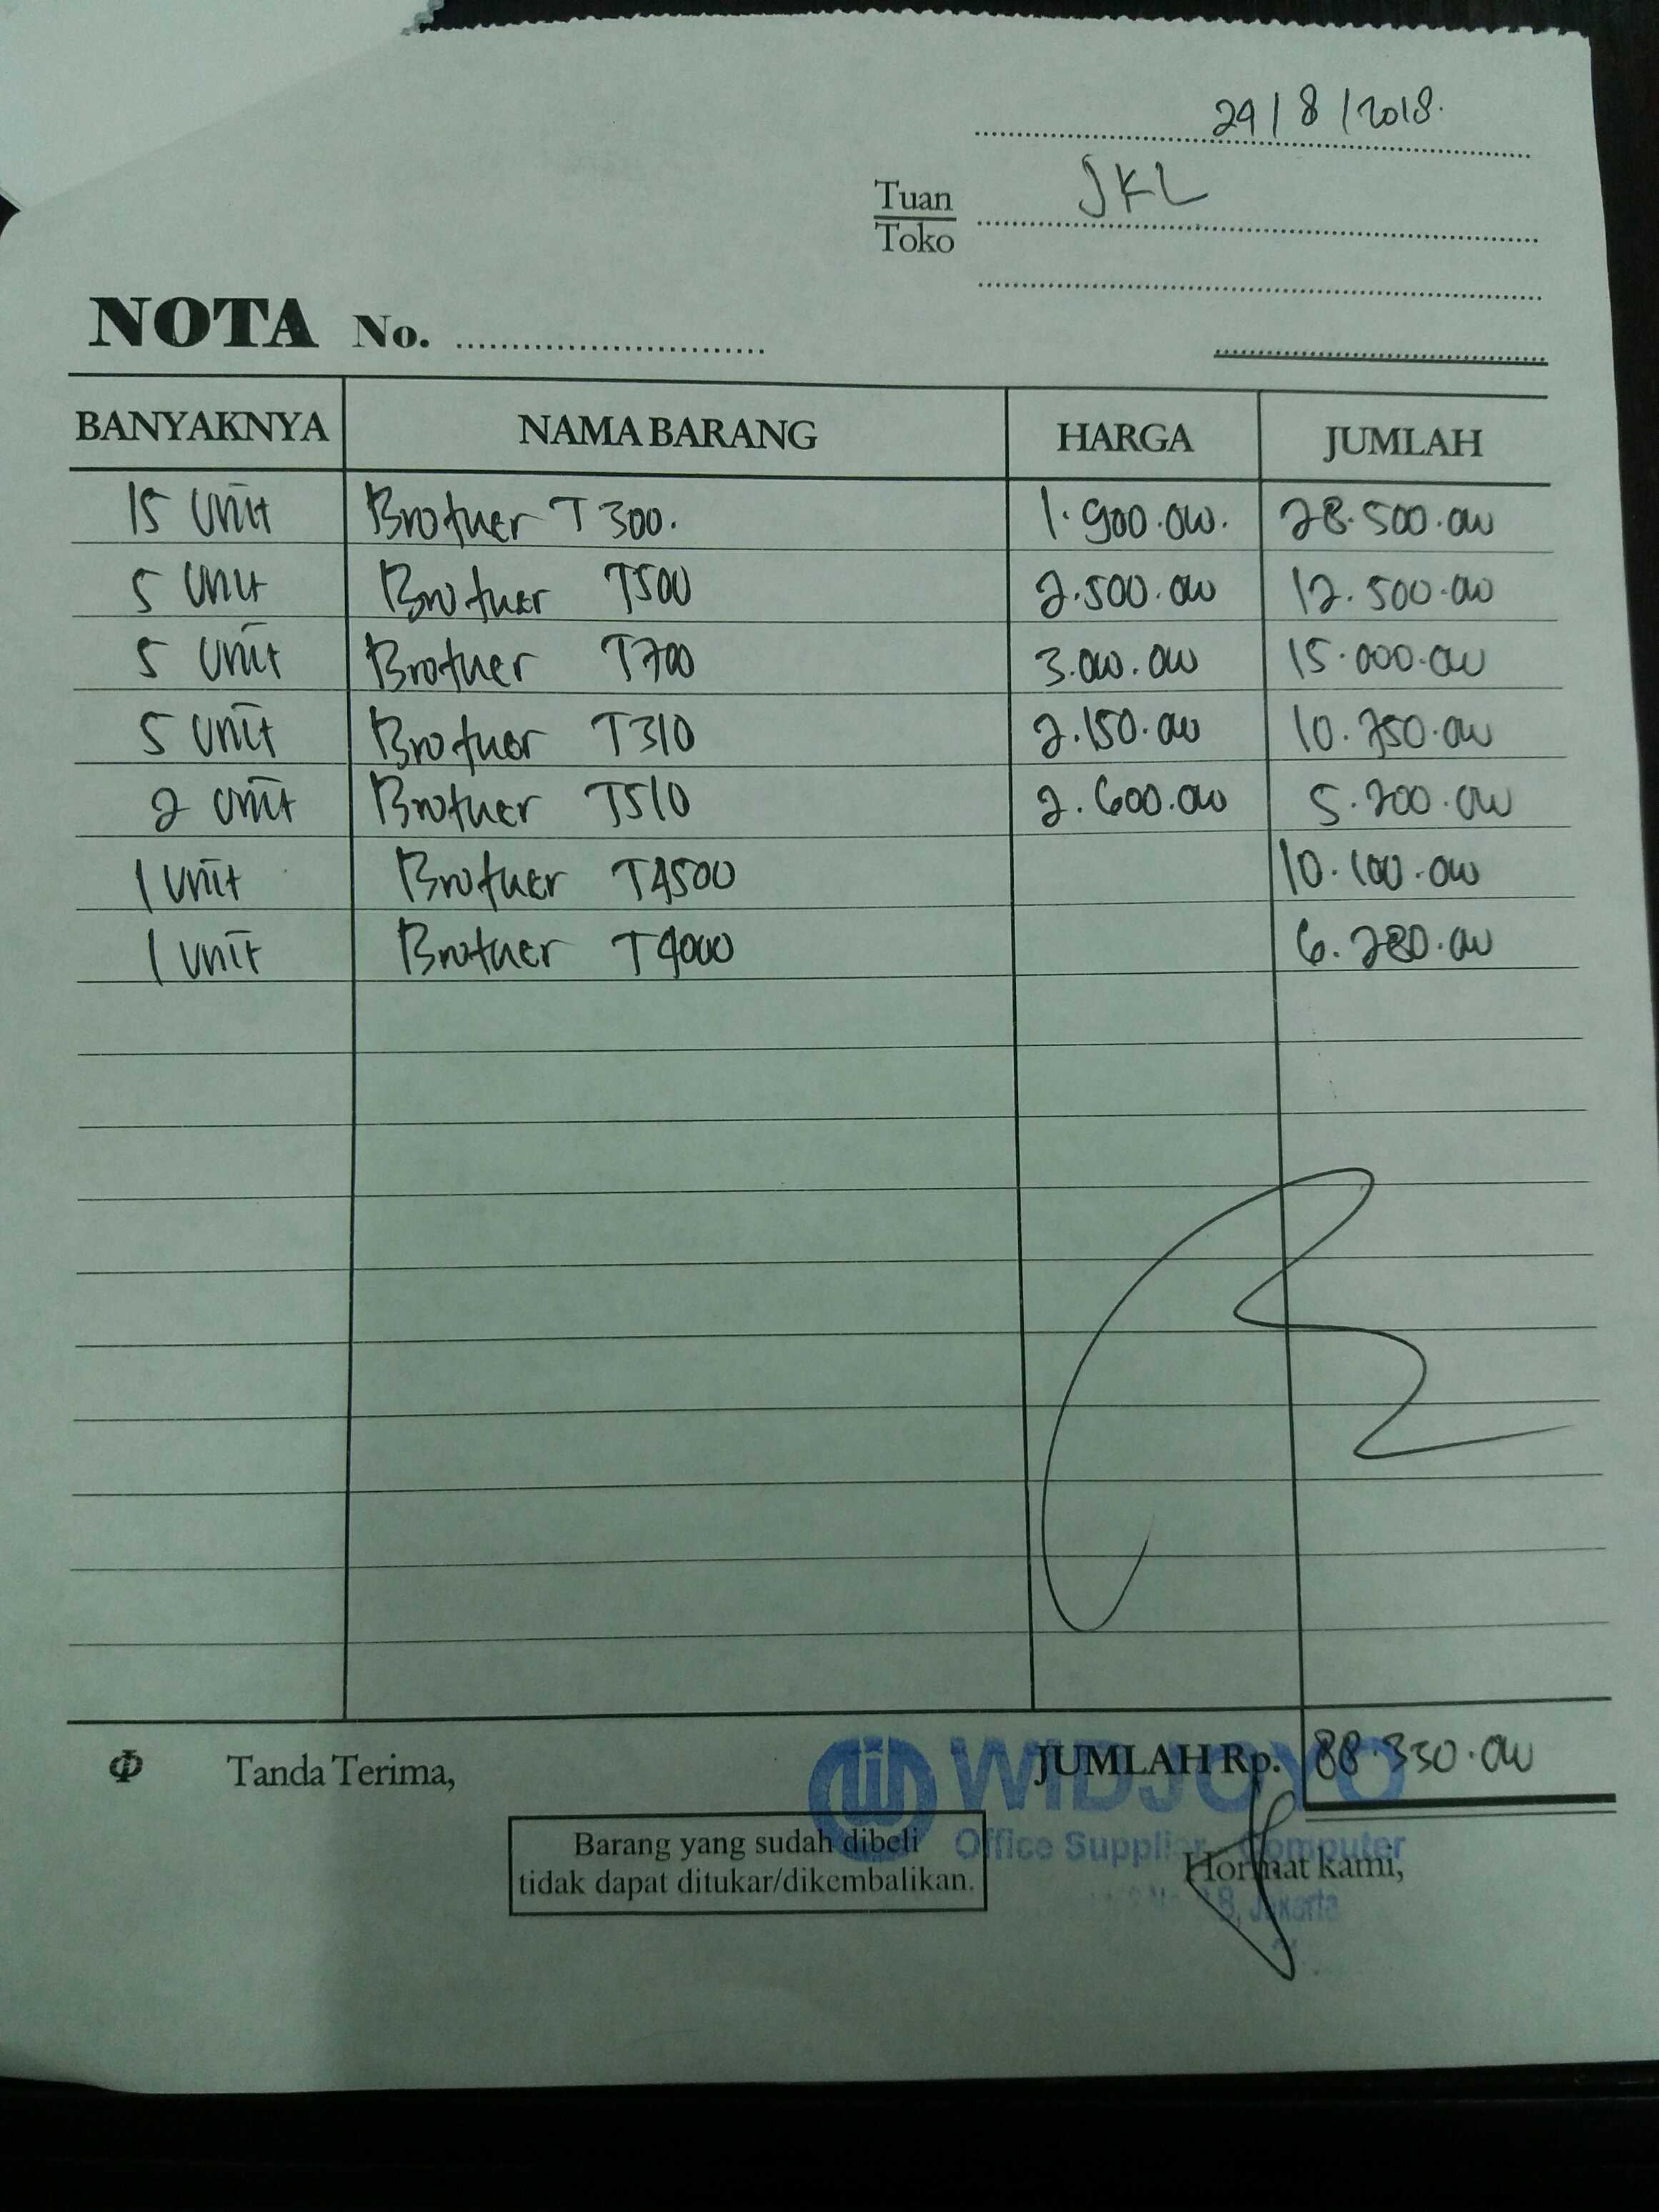 29/8/2018.
Tuan JKL
Toko
NOTA No.
BANYAKNYA NAMA BARANG HARGA JUMLAH
15 Unit Brother T300. 1.900.000. 28.500.000
5 Unit Brother T500 2.500.000 12.500.000
5 Unit Brother T700 3.000.000 15.000.000
5 Unit Brother T310 2.150.000 10.750.000
2 Unit Brother T510 2.600.000 5.200.000
1 Unit Brother T4500 10.100.000
1 Unit Brother T4000 6.280.000
JUMLAH Rp. 88.330.000
Tanda Terima,
WIDJOYO
Barang yang sudah dibeli
tidak dapat ditukar/dikembalikan.
Office Supplier Computer
Hormat kami,
Jakarta